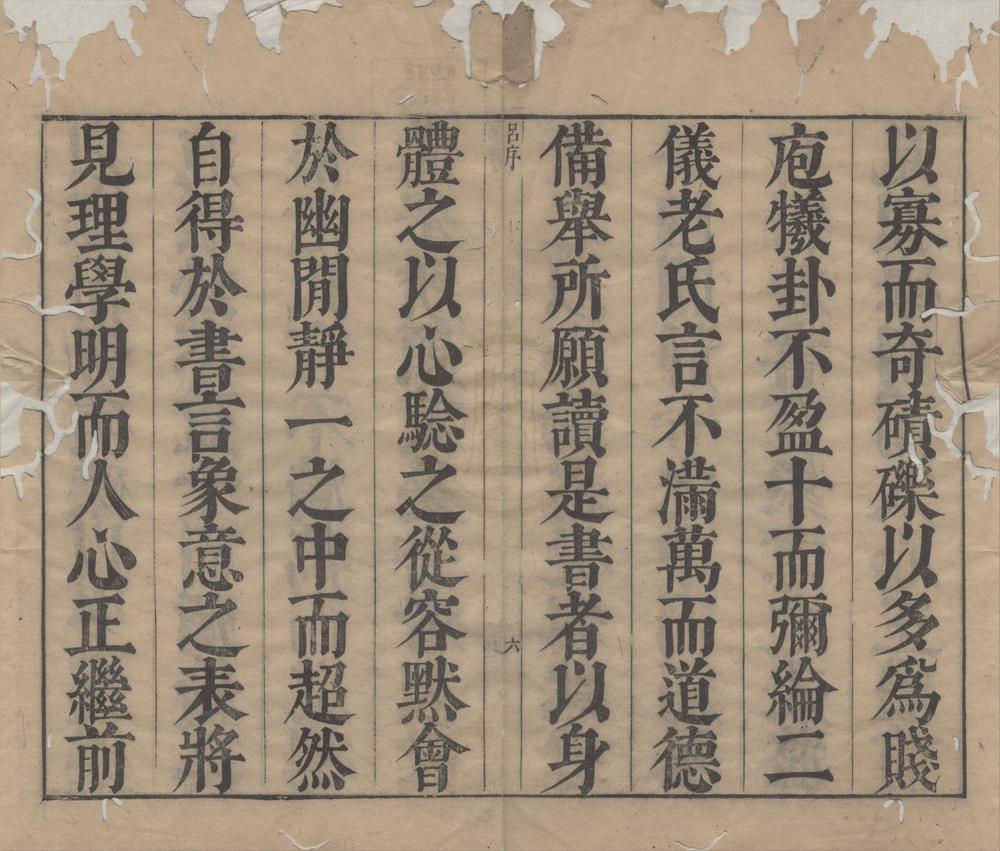 以寡而奇磧礫以多爲賤
庖犧卦不盈十而彌綸二
儀老氏言不滿萬而道德
備舉所願讀是書者以身
呂序
六
體之以心驗之從容默會
於幽閒靜一之中而超然
自得於書言象意之表將
見理學明而人心正繼前